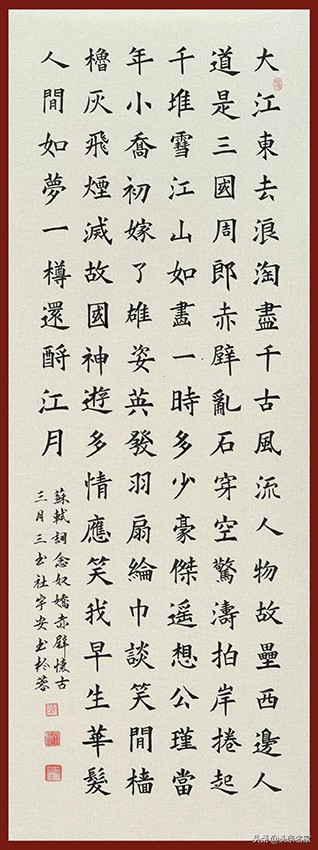 大江東去浪淘盡千古風流人物故壘西邊人
道是三國周郎赤壁亂石穿空驚濤拍岸捲起
千堆雪江山如畫一時多少豪傑遙想公瑾當
年小喬初嫁了雄姿英發羽扇綸巾談笑間檣
櫓灰飛煙滅故國神遊多情應笑我早生華髮
人間如夢一樽還酹江月
蘇軾詞念奴嬌赤壁懷古
三月三書社宇安書於蓉